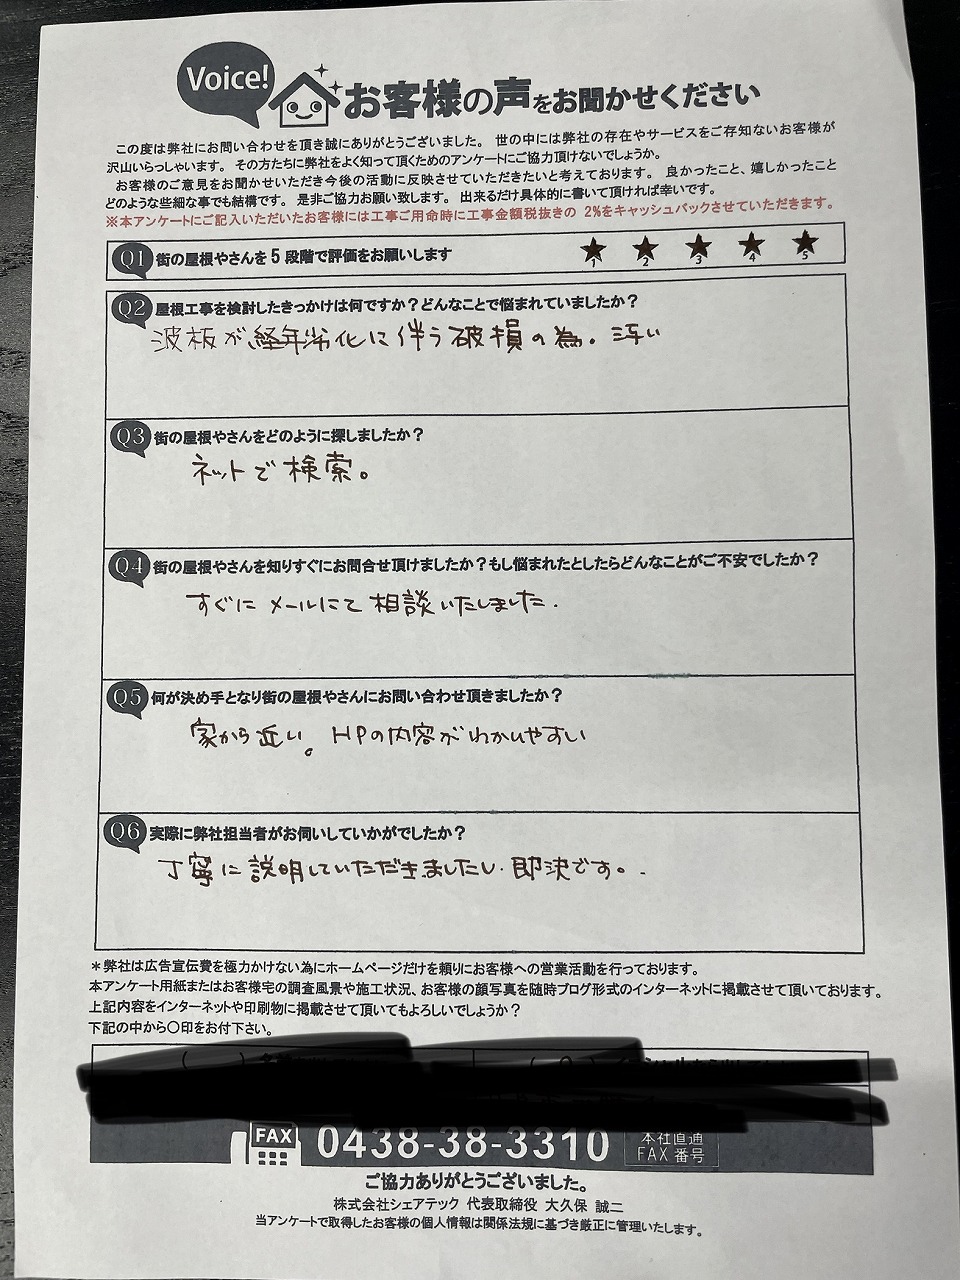 Voice!
お客様の声をお聞かせください
この度は弊社にお問い合わせを頂き誠にありがとうございました。 世の中には弊社の存在やサービスをご存知ないお客様が
沢山いらっしゃいます。 その方たちに弊社をよく知って頂くためのアンケートにご協力頂けないでしょうか。
お客様のご意見をお聞かせいただき今後の活動に反映させていただきたいと考えております。 良かったこと、嬉しかったこと
どのような些細な事でも結構です。 是非ご協力お願い致します。 出来るだけ具体的に書いて頂ければ幸いです。
※本アンケートにご記入いただいたお客様には工事ご用命時に工事金額税抜きの 2%をキャッシュバックさせていただきます。
Q1 街の屋根やさんを5段階で評価をお願いします ★ ★ ★ ★ ★
1 2 3 4 5
Q2 屋根工事を検討したきっかけは何ですか?どんなことで悩まれていましたか?
波板が経年劣化に伴う破損の為。汚い
Q3 街の屋根やさんをどのように探しましたか?
ネットで検索。
Q4 街の屋根やさんを知りすぐにお問合せ頂けましたか?もし悩まれたとしたらどんなことがご不安でしたか?
すぐにメールにて相談いたしました.
Q5 何が決め手となり街の屋根やさんにお問い合わせ頂きましたか?
家から近い。HPの内容がわかりやすい
Q6 実際に弊社担当者がお伺いしていかがでしたか?
丁寧に説明していただきましたし.即決です。
*弊社は広告宣伝費を極力かけない為にホームページだけを頼りにお客様への営業活動を行っております。
本アンケート用紙またはお客様宅の調査風景や施工状況、お客様の顔写真を随時ブログ形式のインターネットに掲載させて頂いております。
上記内容をインターネットや印刷物に掲載させて頂いてもよろしいでしょうか?
下記の中から〇印をお付下さい。
FAX 0438-38-3310 本社直通
FAX番号
ご協力ありがとうございました。
株式会社シェアテック 代表取締役 大久保 誠二
当アンケートで取得したお客様の個人情報は関係法規に基づき厳正に管理いたします。